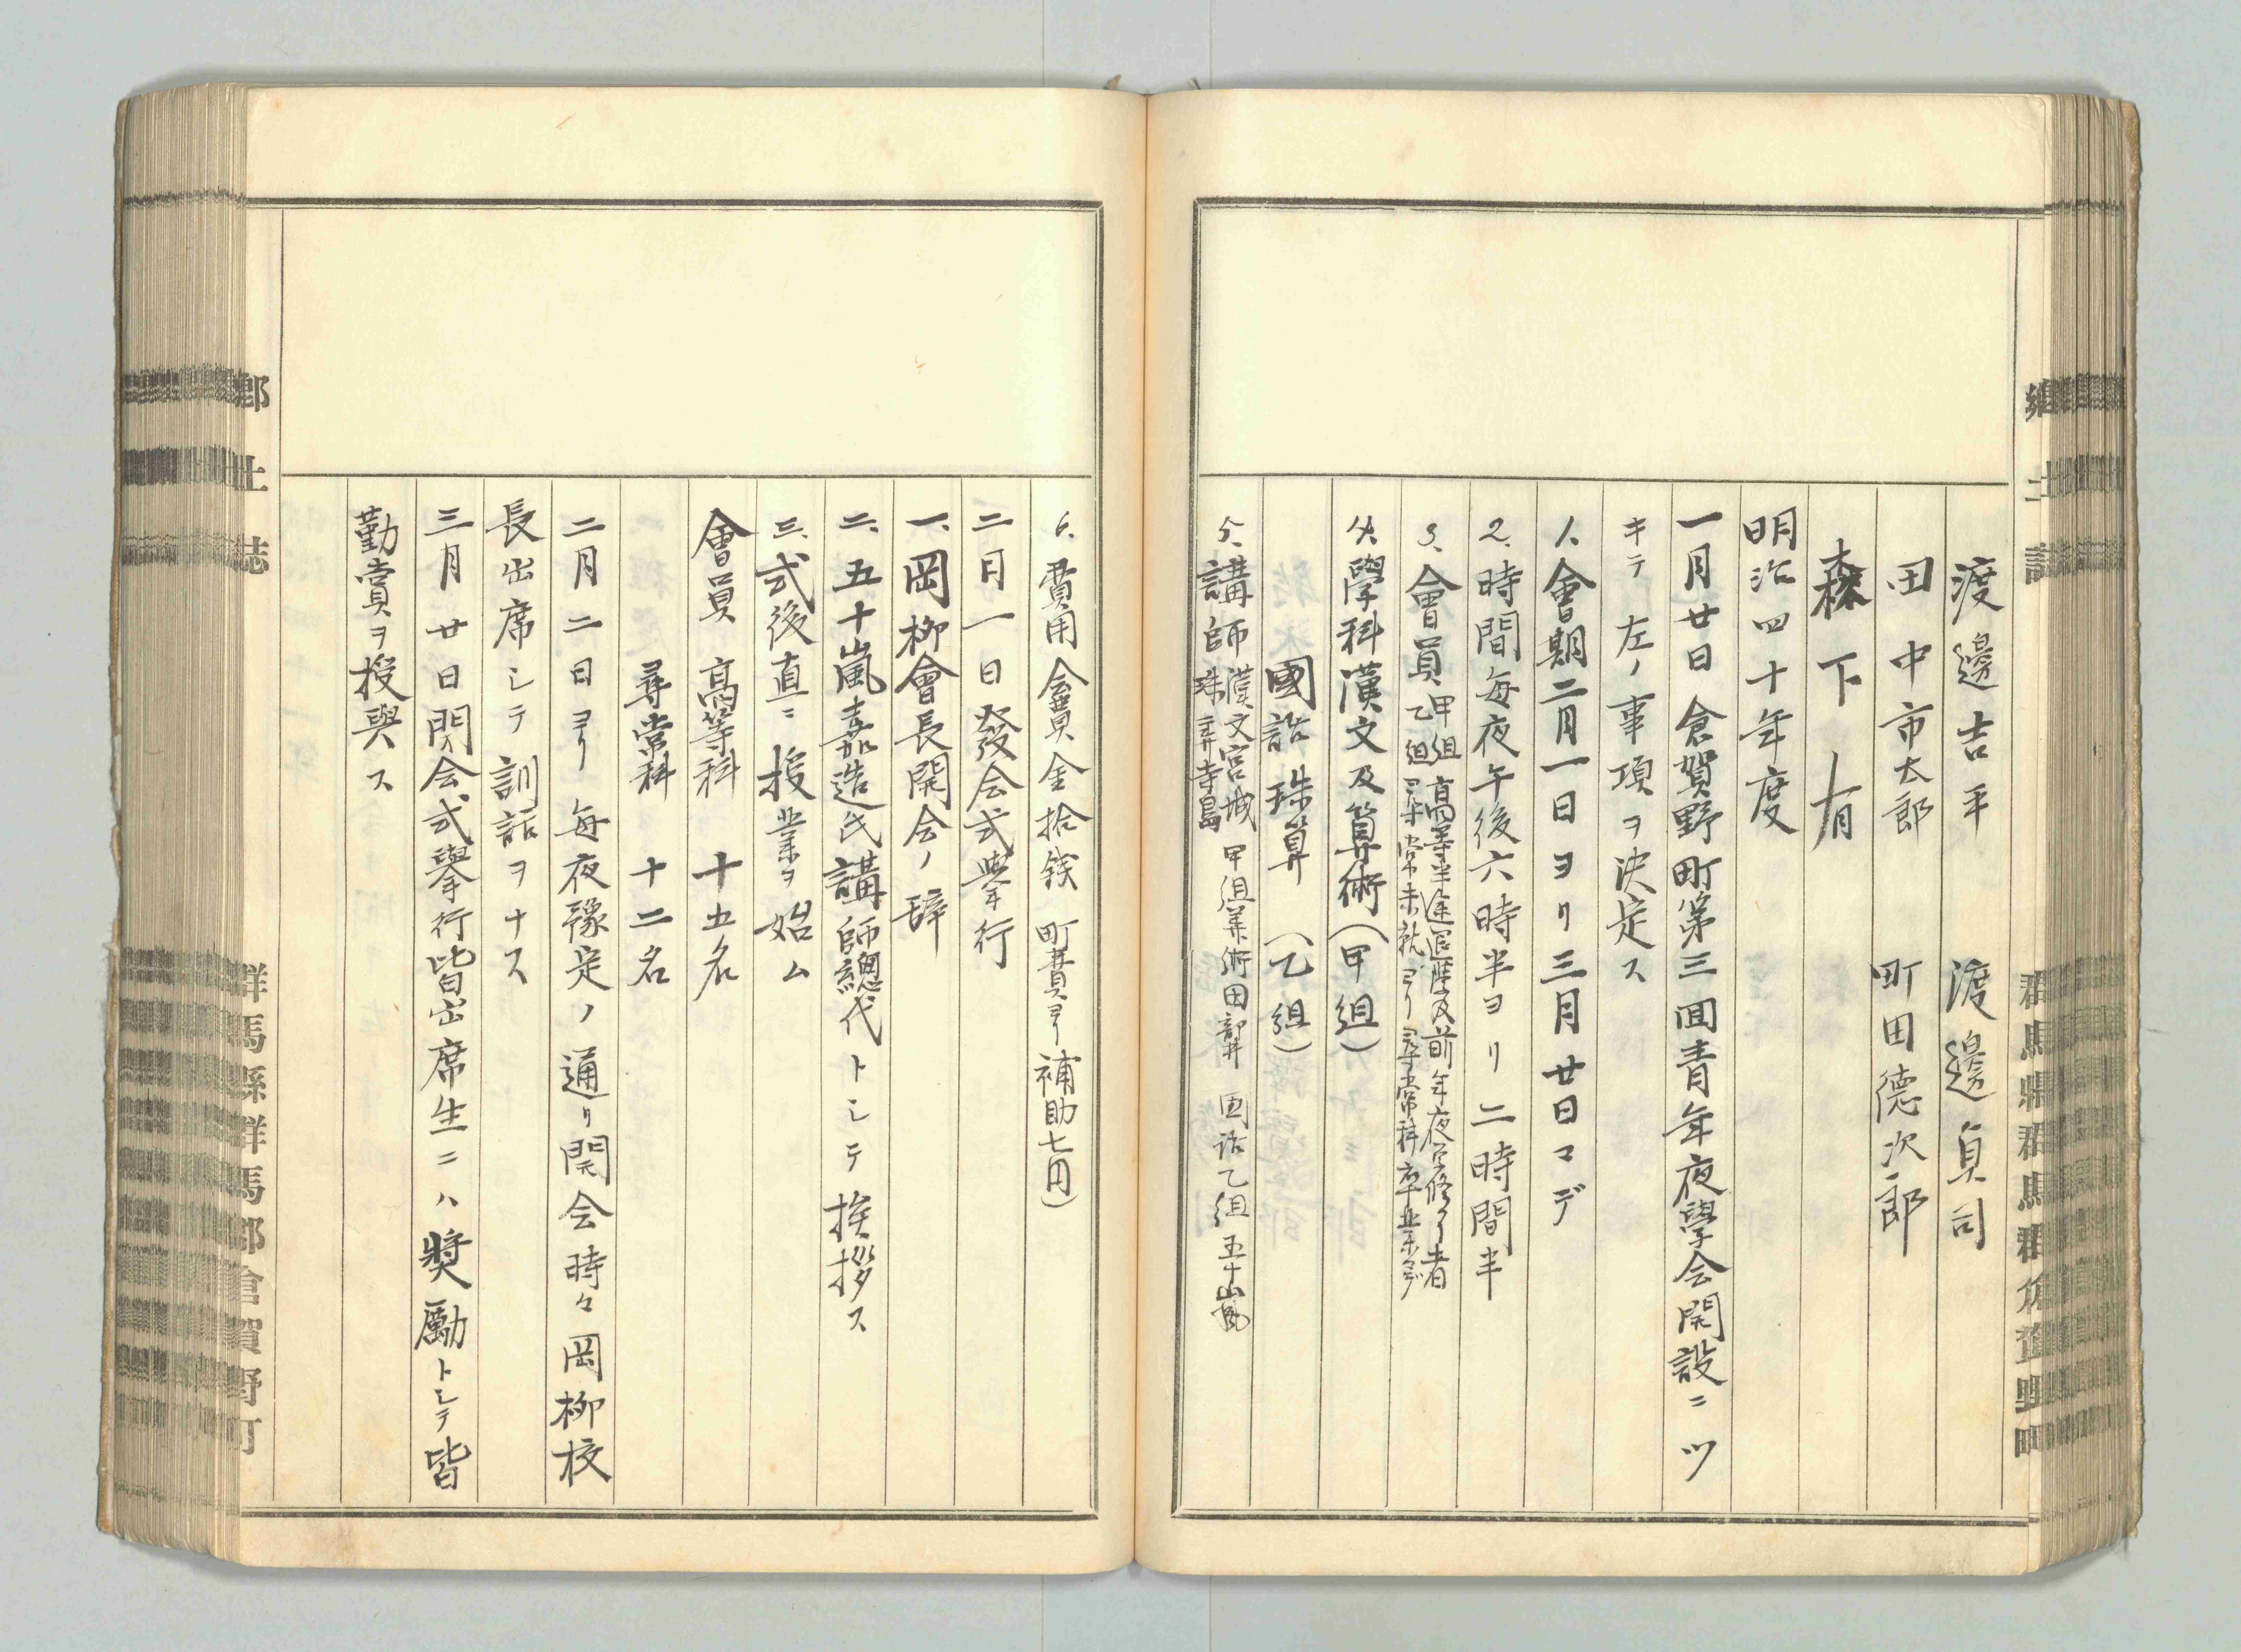 鄉土誌
群馬縣群馬郡倉賀野町
渡邊吉平　渡邊貞司
田中市太郎　町田德次郎
森下有
明治四十年度
一月廿日倉賀野町第三囬青年夜學会開設ニツ
キテ左ノ事項ヲ決定ス
1、會期二月一日ヨリ三月廿日マデ
2、時間每夜午後六時半ヨリ二時間半
3、會員
甲組　高等半途退歴及前年夜学修了者
乙組　尋常未就ヨリ尋常科卒業マデ
4、學科漢文及算術（甲組）
國語珠算（乙組）
5、講師
漢文宮城　甲組算術田部井　国語乙組五十嵐
珠算寺島
6、費用会費金拾銭　町費ヨリ補助七円）
二月一日發会式擧行
一、岡柳會長開会ノ辞
二、五十嵐嘉造氏講師總代トシテ挨拶ス
三、式後直ニ授業ヲ始ム
會員　高等科　十五名
尋常科　十二名
二月二日ヨリ每夜豫定ノ通リ開会時々岡柳校
長出席シテ訓話ヲナス
三月廿日閉会式擧行皆出席生ニハ奬勵トシテ皆
勤賞ヲ授與ス
鄉土誌
群馬縣群馬郡倉賀野町